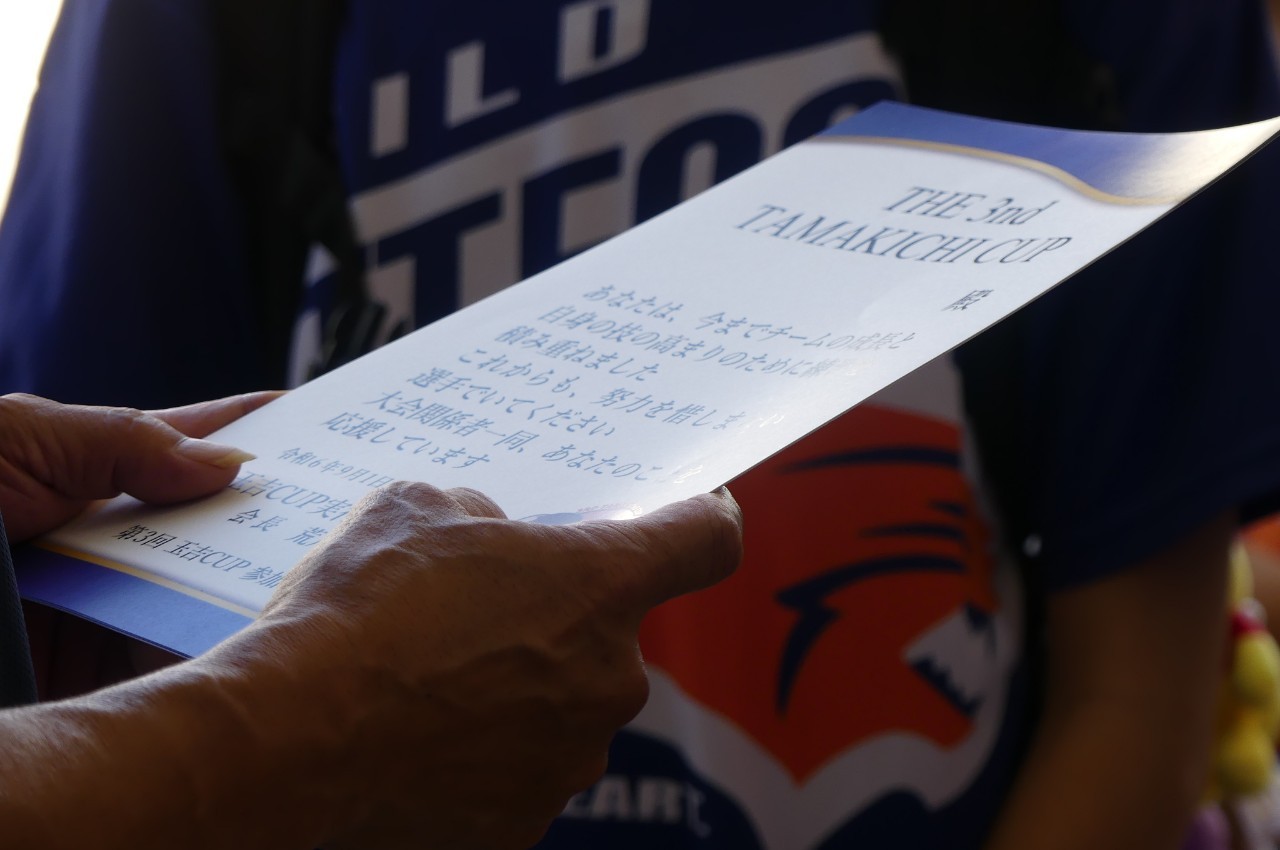 ILD
THE 3nd
TAMAKICHI CUP
殿
あなたは、今までチームの成長と
自身の技の高まりのために
積み重ねました
これからも、努力を惜しま
選手でいてください
大会関係者一同、あなたのこ
応援しています
令和6年9月1日
玉吉CUP実行
会長 荒
第3回 玉吉CUP 参加